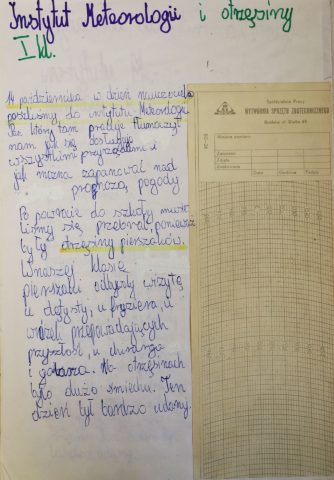 Instytut Meteorologii i otrzęsiny
I kl.
14 października w dzień nauczyciela
poszliśmy do instytutu Meteorologii
Pan który tam pracuje tłumaczył
nam jak się posługuje
wszystkimi przyrządami i
jak można zapanować nad
prognozą pogody
Po powrocie do szkoły musie
liśmy się przebrać, ponieważ
były otrzęsiny pierszaków.
Wnaszej klasie
pierszaki odbyły wizytę
u detysty, u fryziera, u
wróżki przepowiadających
przyszłość, u chirurga
i golarza. Na otrzęsinach
było dużo śmiechu. Ten
dzień był bardzo udany.
Spółdzielnia Pracy
WYTWÓRNIA SPRZĘTU ZOOTECHNICZNEGO
Kraków, ul. Wielka
Miejsce pomiaru
Założono
Zdjęto
Data Godzina Podpis